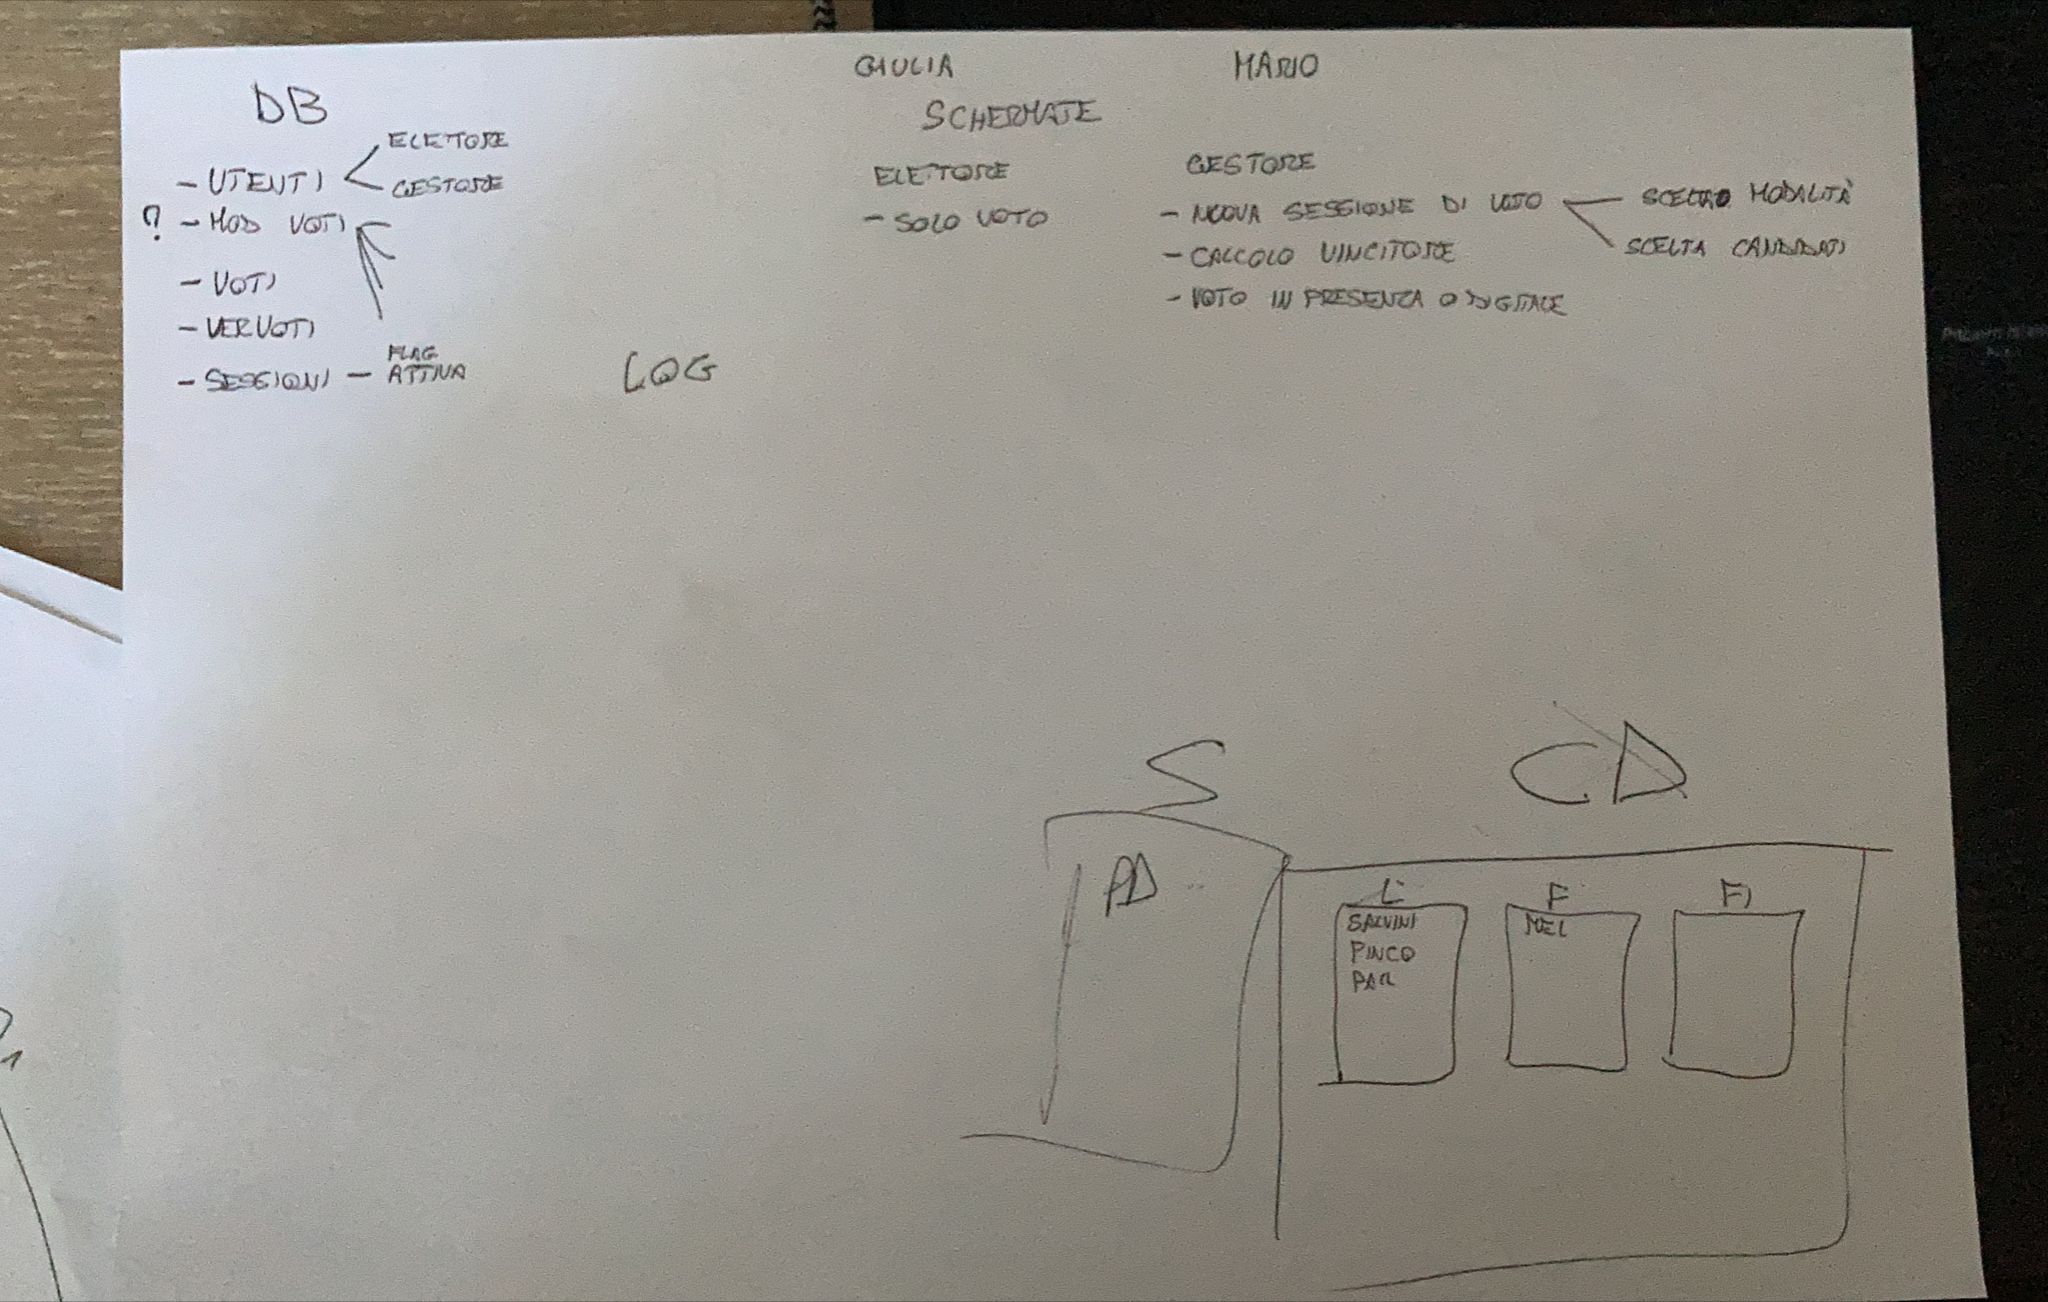 GIULIA MARIO
DB
SCHERMATE
- UTENTI
ELETTORE
GESTORE
? - MOD VOTI
- VOTI
- VERVOTI
- SESSIONI - FLAG ATTIVA
LOG
ELETTORE
- SOLO VOTO
GESTORE
- NUOVA SESSIONE DI VOTO
SCELTA MODALITÀ
SCELTA CANDIDATI
- CALCOLO VINCITORE
- VOTO IN PRESENZA O DIGITALE
S
CD
PD
L
SALVINI
PINCO
PAL
F
MEL
FI